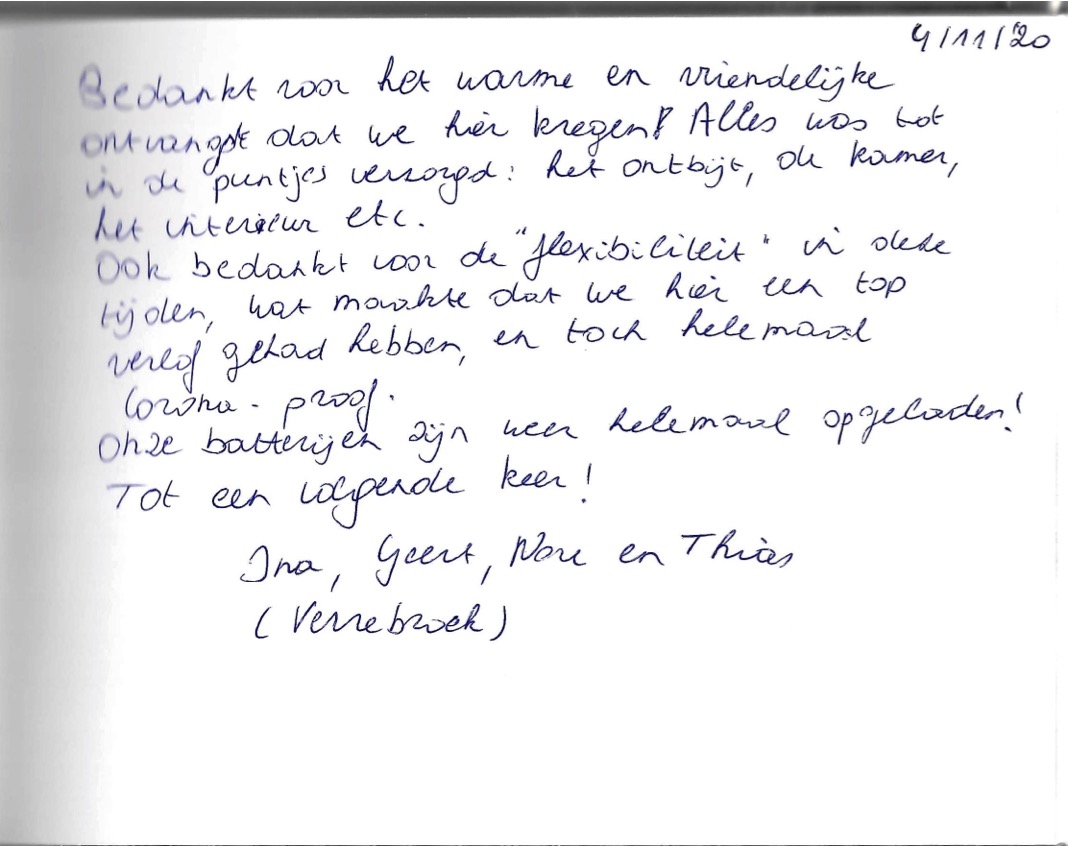 4/11/20
Bedankt voor het warme en vriendelijke
ontvangst dat we hier kregen! Alles was tot
in de puntjes verzorgd: het ontbijt, de kamer,
het interieur etc.
Ook bedankt voor de "flexibiliteit" in deze
tijden, wat maakte dat we hier een top
verlof gehad hebben, en toch helemaal
Corona-proof.
Onze batterijen zijn weer helemaal opgeladen!
Tot een volgende keer!
Ina, Geert, Nore en Thias
(Verrebroek)